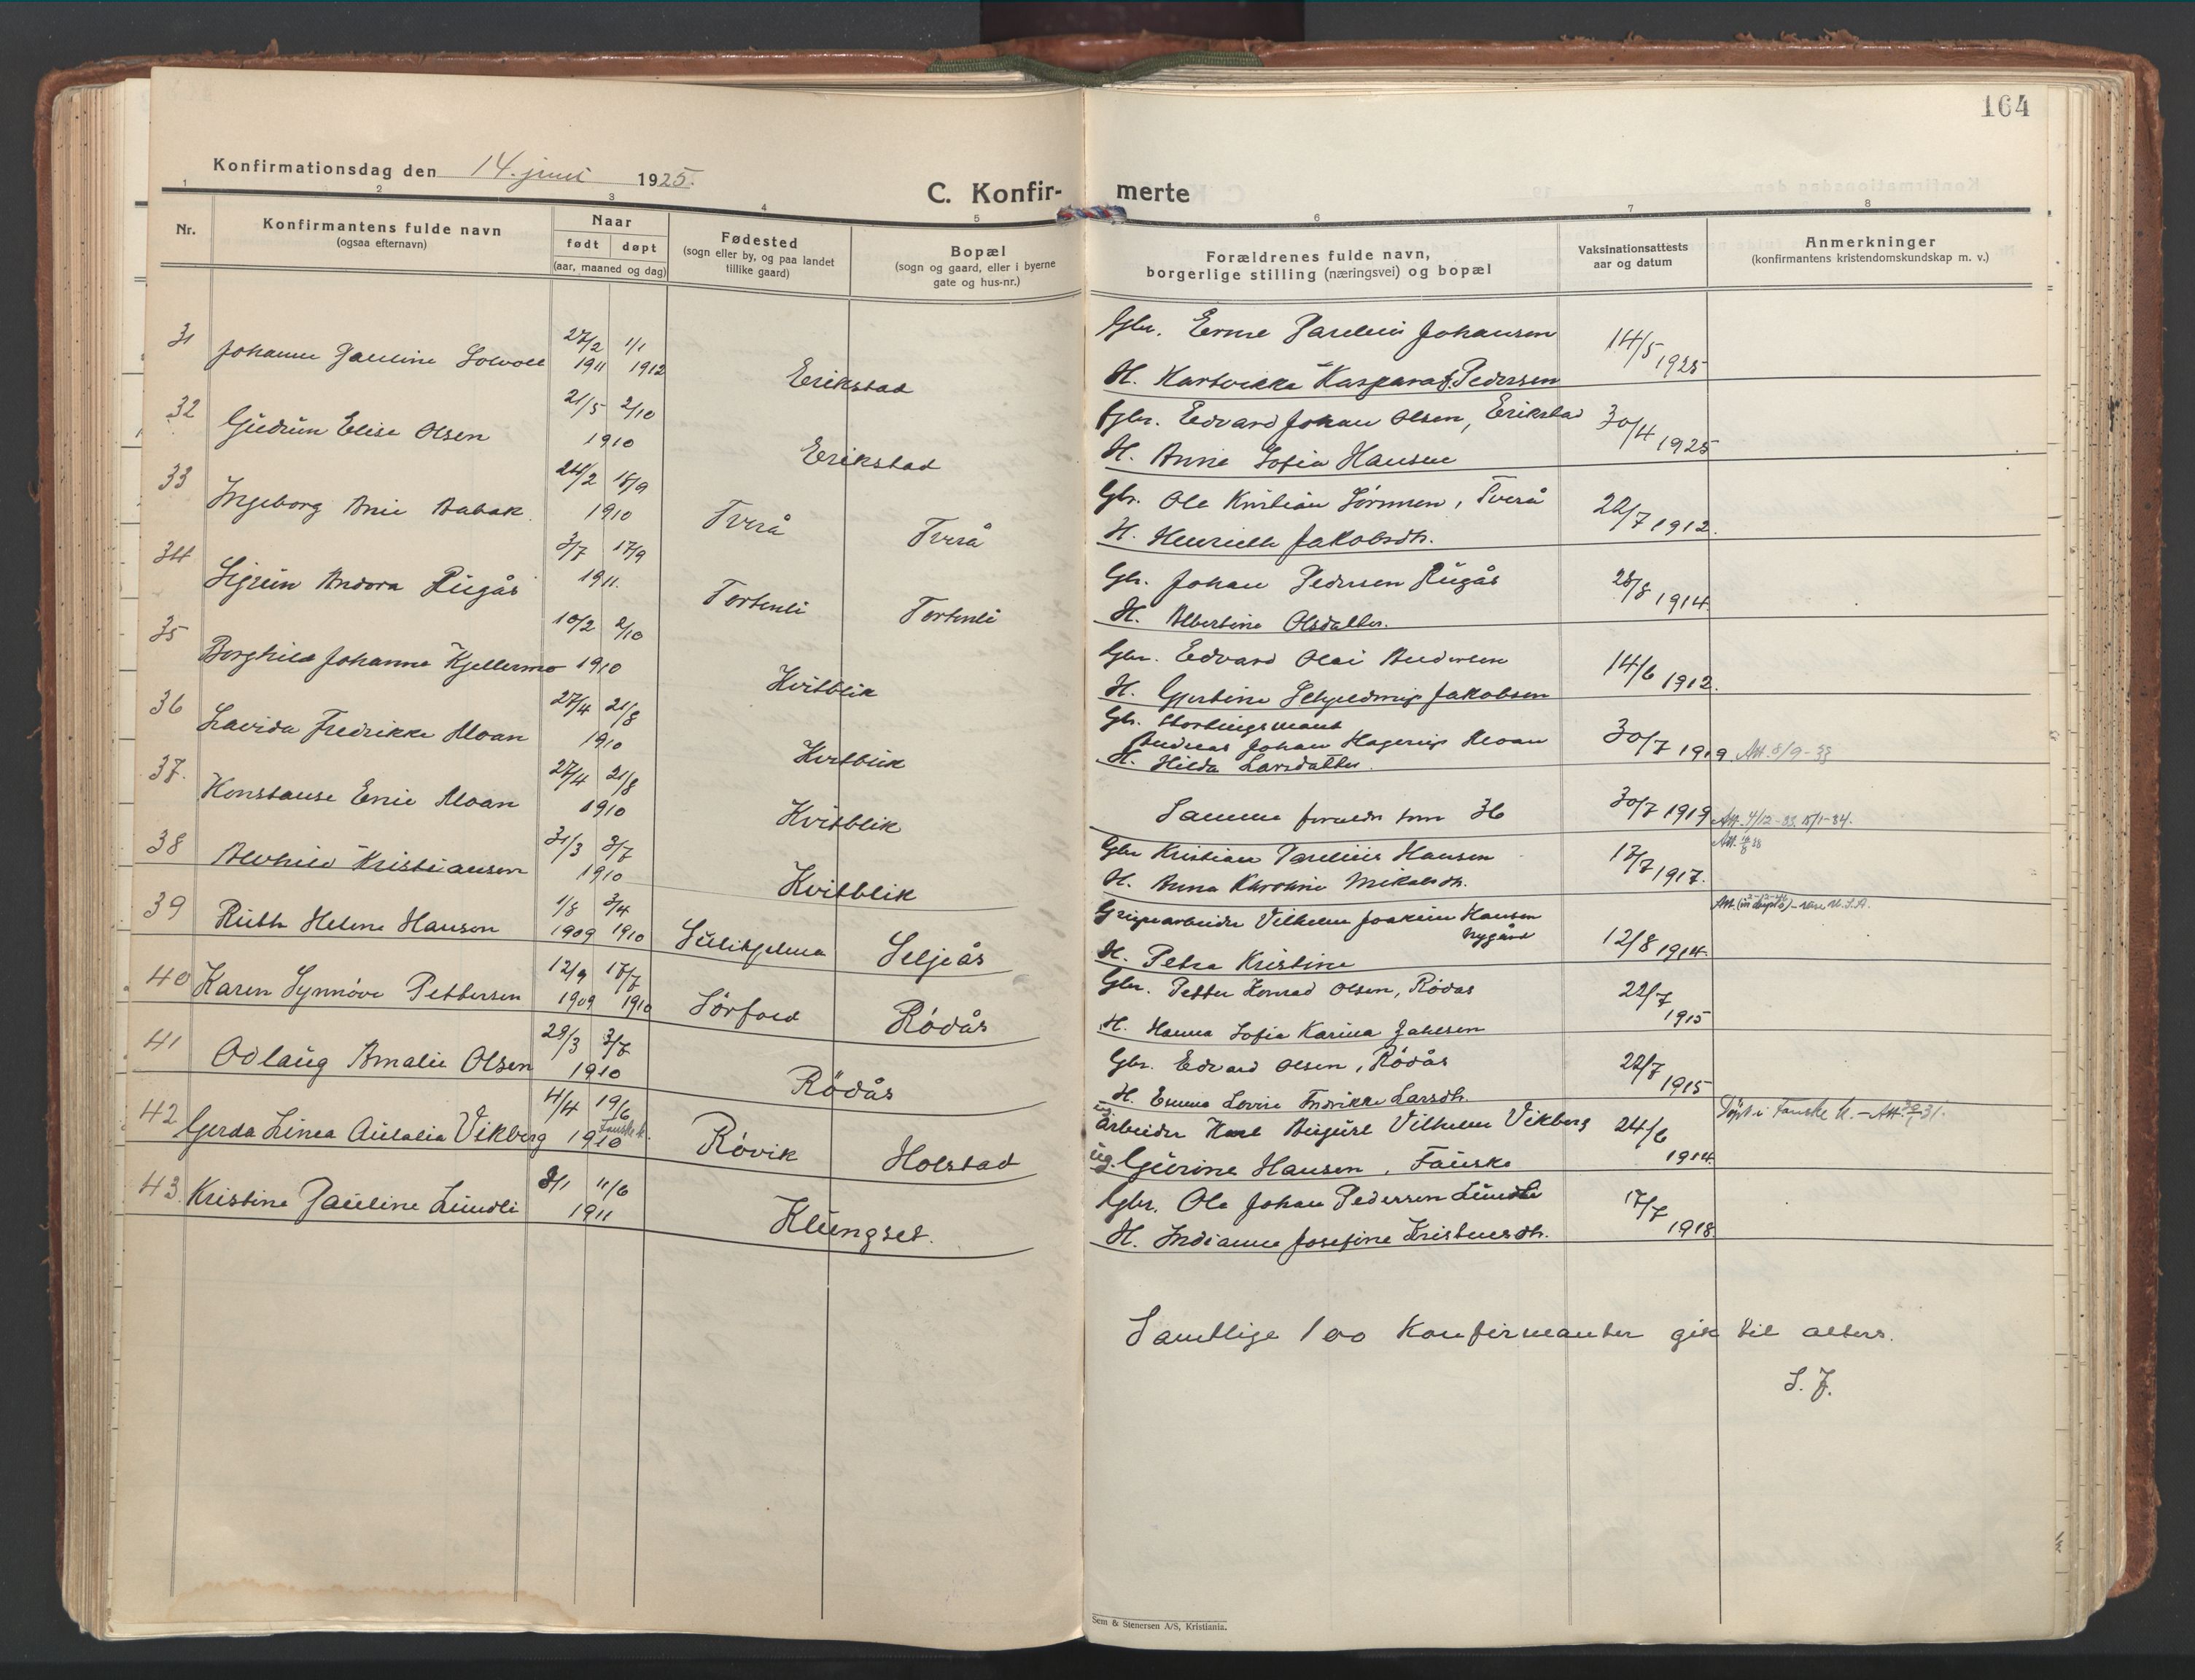 164
Konfirmationsdag den 14. juni 1925.
C. Konfirmerte
1 2 3 4 5 6 7 8
Nr.
Konfirmantens fulde navn
(ogsaa efternavn)
Naar
født døpt
(aar, maaned og dag)
Fødested
(sogn eller by, og paa landet
tillike gaard)
Bopæl
(sogn og gaard, eller i byerne
gate og hus-nr.)
Forældrenes fulde navn,
borgerlige stilling (næringsvei) og bopæl
Vaksinationsattests
aar og datum
Anmerkninger
(konfirmantens kristendomskundskap m. v.)
31 Johanne Pauline Solvoll 27/2 1911 1/1 1912 Erikstad
Gbr. Johansen 14/5 1925
H. Hartvikka Kaspara Pedersen
32 Gudrun Elise Olsen 21/5 2/10 1910 Erikstad
Gbr. Edvard Johan Olsen, Erikstad 30/4 1925
H. Anna Sofia Hansen
33 Ingeborg Anie Aabak 24/2 18/9 1910 Tverå Tverå
Gbr. Ole Kristian Sörensen, Tverå 22/7 1912.
H. Henriette Jakobsdtr.
34 Sigrun Andora Rugås 3/7 17/9 1911. Tortenli Tortenli
Gbr. Johan Pedersen Rugås 28/8 1914.
H. Albertine Olsdatter.
35 Borghild Johanna Kjellermo 10/2 2/10 1910 Kvitblik
Gbr. Edvard Olai Andersen 14/6 1912.
H. Gjertine Jakobsen
36 Lavida Fredrikke Moan 27/4 21/8 1910 Kvitblik
Gbr. Stortingsmand
Andreas Johan Hagerup Moan 30/7 1919 Att. 8/9-33
H. Hilda Larsdatter.
37. Konstanse Enie Moan 27/4 21/8 1910 Kvitblik
Samme foreldre som 36 30/7 1919 Att. 4/12-33, 15/1-34.
38 Alvhild Kristiansen 31/3 3/7 1910 Kvitblik
Gbr. Kristian Parelius Hansen 17/7 1917.
H. Anna Karoline Mikalsdtr.
39 Ruth Helene Hansen 1/8 1909 3/4 1910 Sulitjelma Seljeås
Gruvearbeider Vilhelm Joakim Hansen
Nygård 12/8 1914.
H. Petra Kristine
40 Karen Synnöve Pettersen 12/9 1909 17/7 1910 Sörfold Rödås
Gbr. Petter Konrad Olsen, Rödås 22/7 1915
H. Hanna Sofie Karina Zahlsen
41 Odlaug Amalie Olsen 28/3 3/7 1910 Rödås
Gbr. Edvard Olsen, Rödås 22/7 1915
H. Emma Lovise Fredrikke Larsdtr.
42 Gerda Linea Aulalia Vikberg 4/4 19/6 1910 Fauske k. Røvik Holstad
ug. arbeider Karl Birger Vilhelm Vikberg 24/6 1914. Döpt i Fauske k. - Att.
ug. Gurine Hansen, Fauske
43. Kristine Pauline Lundli 8/1 11/6 1911 Klungset.
Gbr. Ole Johan Pedersen Lundli 17/7 1918.
H. Indianne Josefine Kristensdtr.
Samtlige 100 konfirmanter gik til alters.
S. J.
Sem & Stenersen A/S, Kristiania.